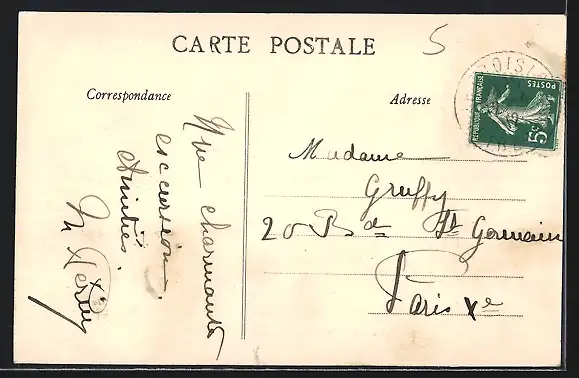 CARTE POSTALE
5
Correspondance
Adresse
OISI
REPUBLIQUE FRANÇAISE
POSTES
5c
Madame
Gruffy
20 Bd St Germain
Paris Ve
charmante
excursion.
Amitiés